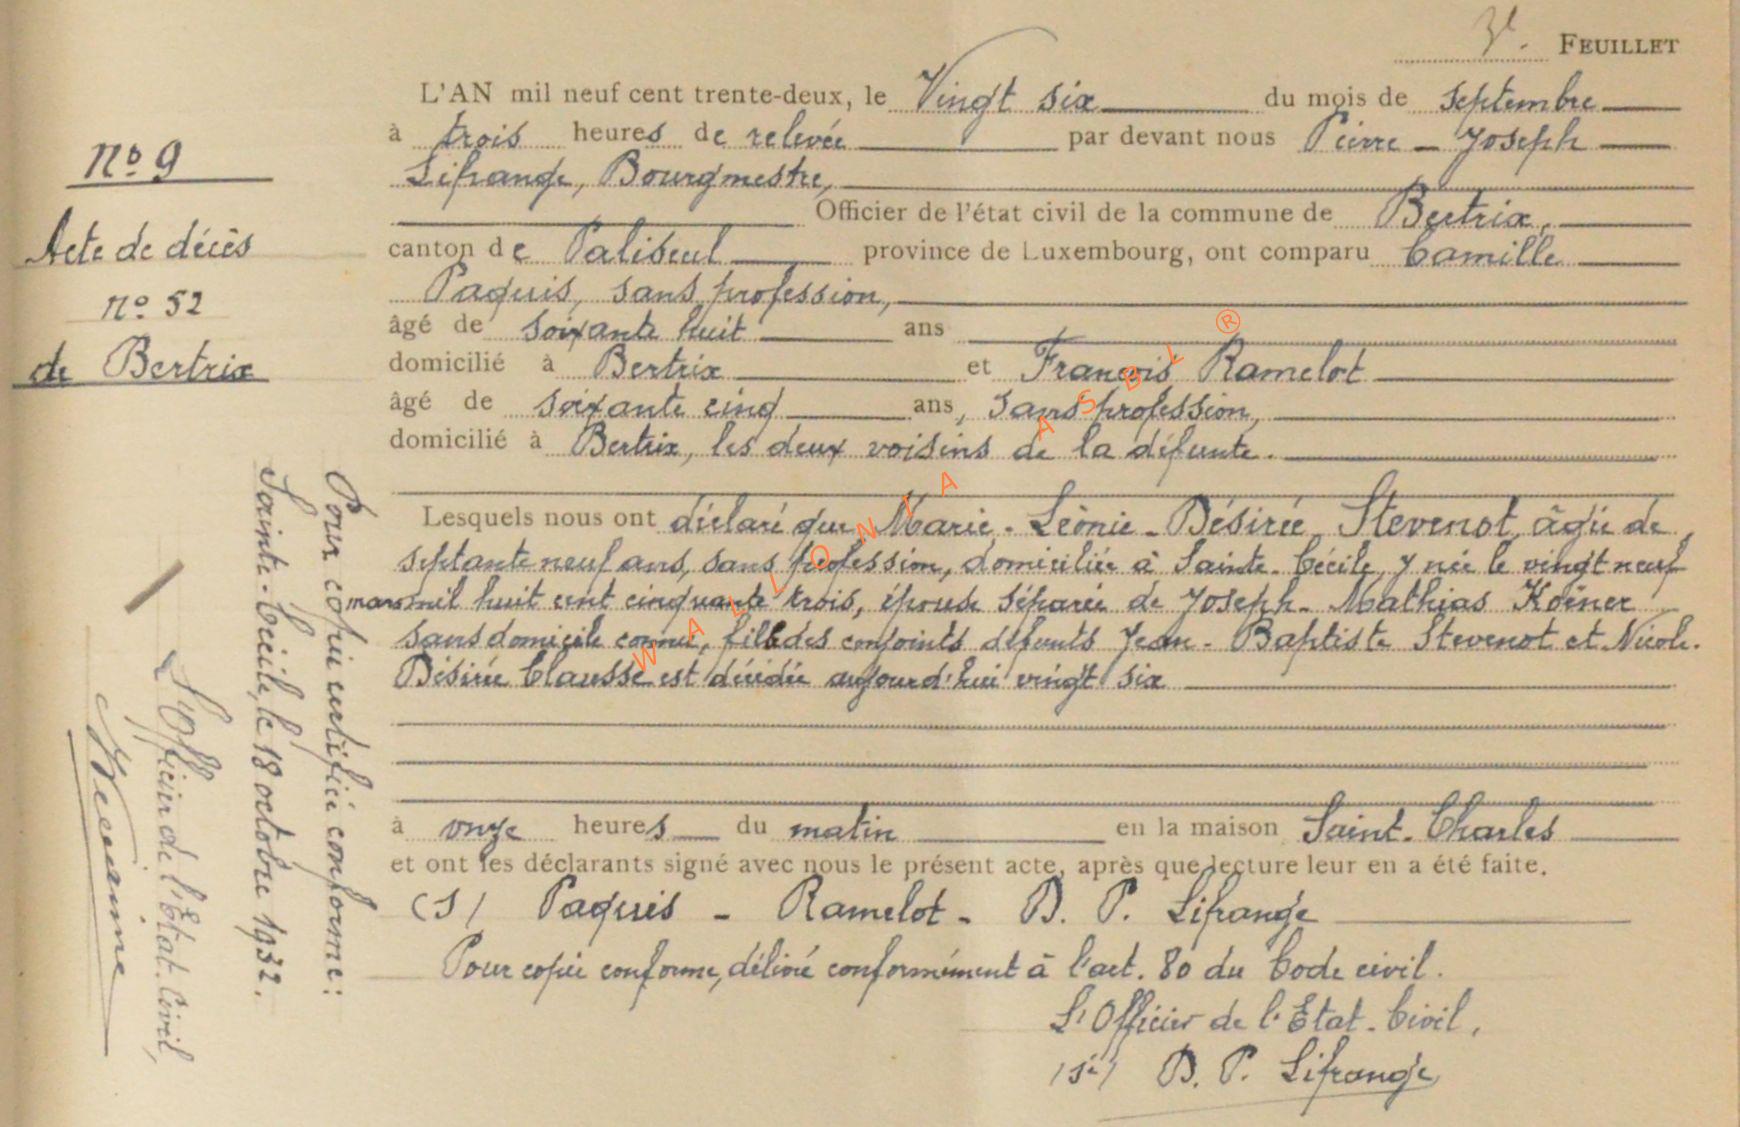 3e. FEUILLET
L'AN mil neuf cent trente-deux, le Vingt six du mois de septembre
à trois heures de relevée par devant nous Pierre - Joseph
Lifrange, Bourgmestre,
Officier de l'état civil de la commune de Bertrix,
canton de Paliseul province de Luxembourg, ont comparu Camille
Paquis, sans profession,
âgé de soixante huit ans
domicilié à Bertrix et François Ramelot
âgé de soixante cinq ans, sans profession,
domicilié à Bertrix, les deux voisins de la défunte.
Lesquels nous ont déclaré que Marie - Léonie - Désirée Stevenot, âgée de
septante neuf ans, sans profession, domiciliée à Sainte-Cécile, y née le vingt neuf
mars mil huit cent cinquante trois, épouse séparée de Joseph - Mathias Koener
sans domicile connu, fille des conjoints défunts Jean - Baptiste Stevenot et Nicole -
Désirée Clausse est décédée aujourd'hui vingt six
à onze heures du matin en la maison Saint-Charles
et ont les déclarants signé avec nous le présent acte, après que lecture leur en a été faite.
(s) Paquis - Ramelot - D. P. Lifrange
Pour copie conforme, délivré conformément à l'art. 80 du Code civil.
L'Officier de l'Etat-Civil,
(sé) D. P. Lifrange
No 9
Acte de décès
no 52
de Bertrix
Pour copie certifiée conforme:
Sainte-Cécile, le 18 octobre 1932.
L'Officier de l'Etat-Civil,
WALLONIA ASBL ®